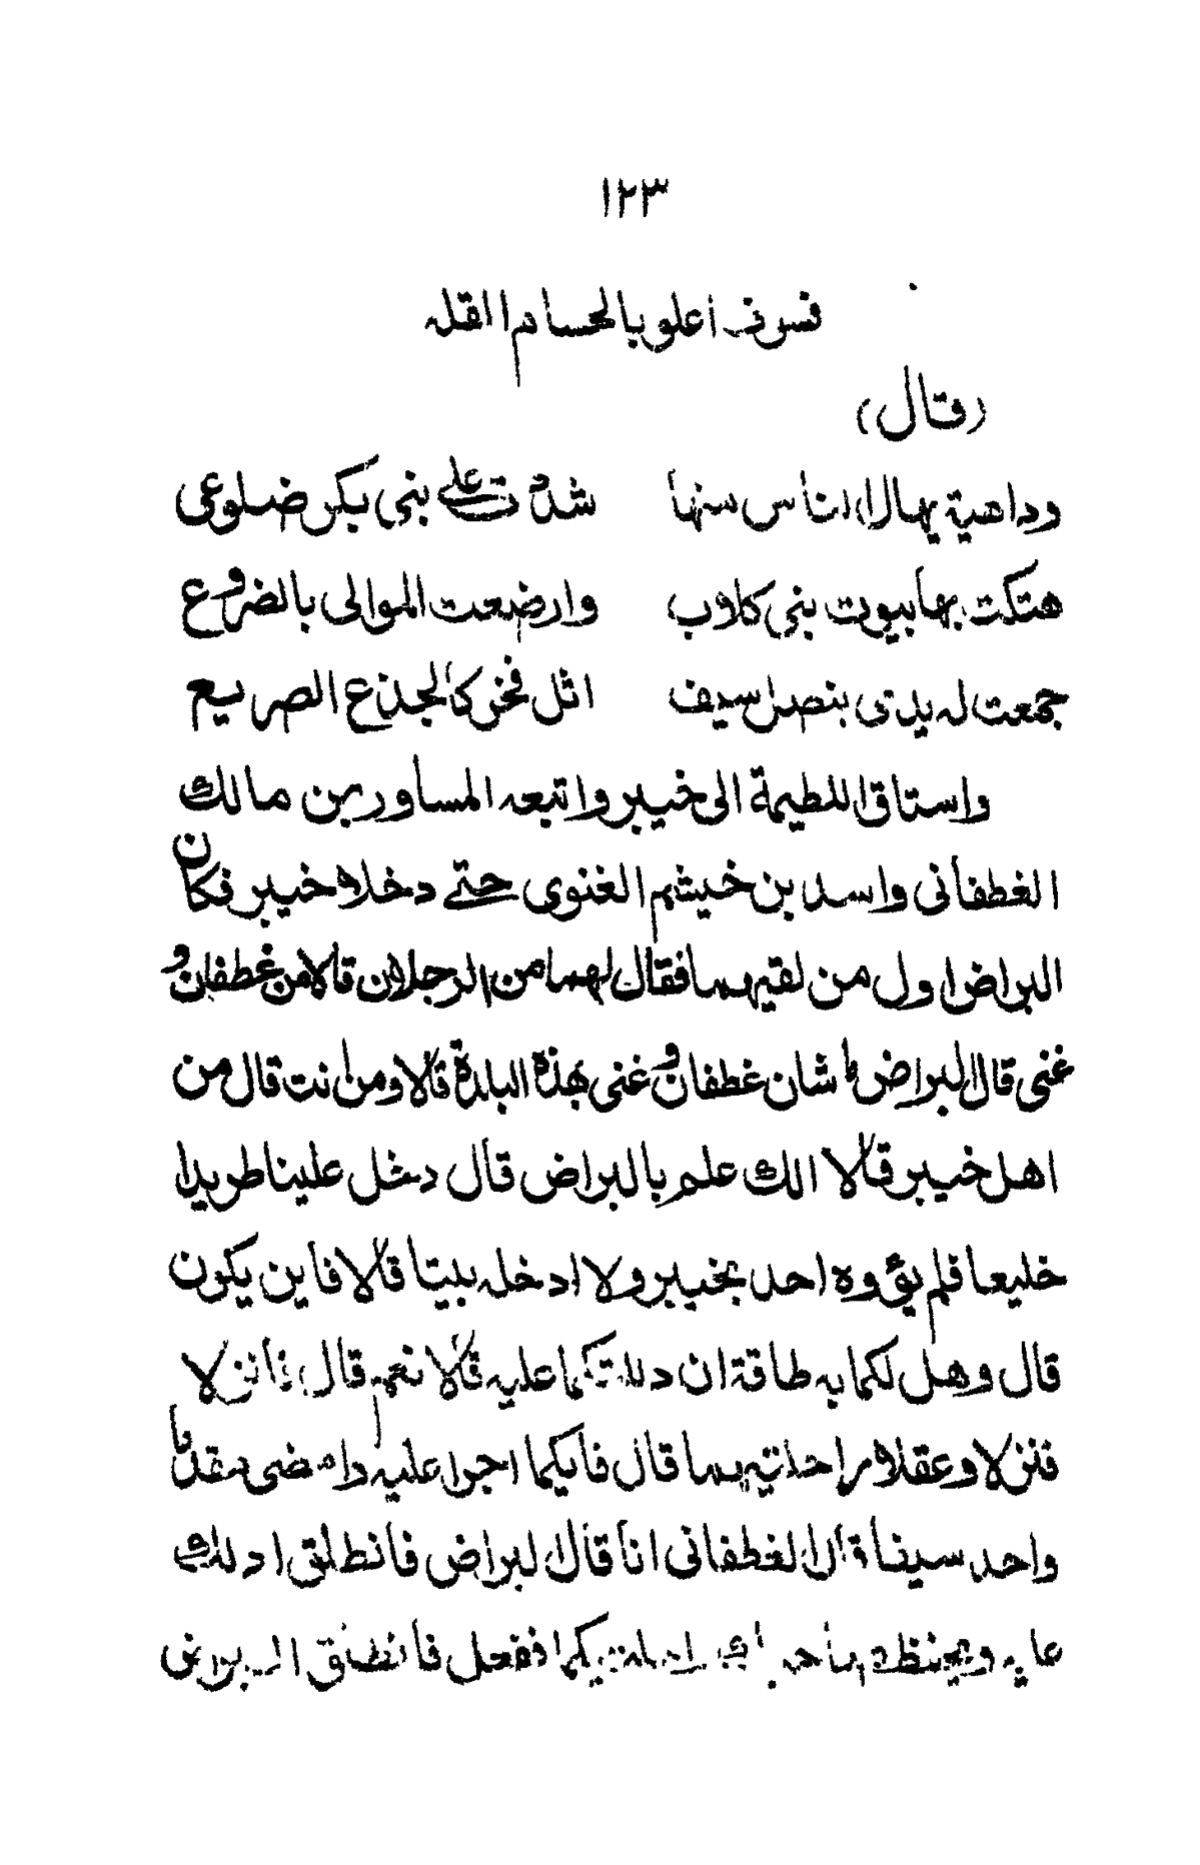 ١٢٣
فسوف أعلو بالحسام القله
(قال)
وداهية يهال الناس منها شددت على بنى بكر ضلوعى
هتكت بها بيوت بنى كلاب وارضعت الموالى بالضروع
جمعت له يدى بنصل سيف اثل فخر كالجذع الصريع
واستاق اللطيمة الى خيبر واتبعه المساور بن مالك
الغطفانى واسد بن خيثم الغنوى حتى دخلا خيبر فكان
البراض اول من لقيهما فقال لهما من الرجلان قالا من غطفان و
غنى قال البراض ما شان غطفان و غنى بهذه البلدة قالا ومن انت قال من
اهل خيبر قالا الك علم بالبراض قال دخل علينا طريدا
خليعا فلم يؤوه احد بخيبر ولا ادخله بيتا قالا فاين يكون
قال وهل لكما به طاقة ان دللتكما عليه قالا نعم قال فانزلا
فنزلا وعقلا راحلتيهما قال فايكما اجرا عليه وامضى مقدما
واحد سيفا قال الغطفانى انا قال البراض فانطلق ادلك
عليه ويحفظ صاحبك راحلتيكما ففعل فانطلق البراض